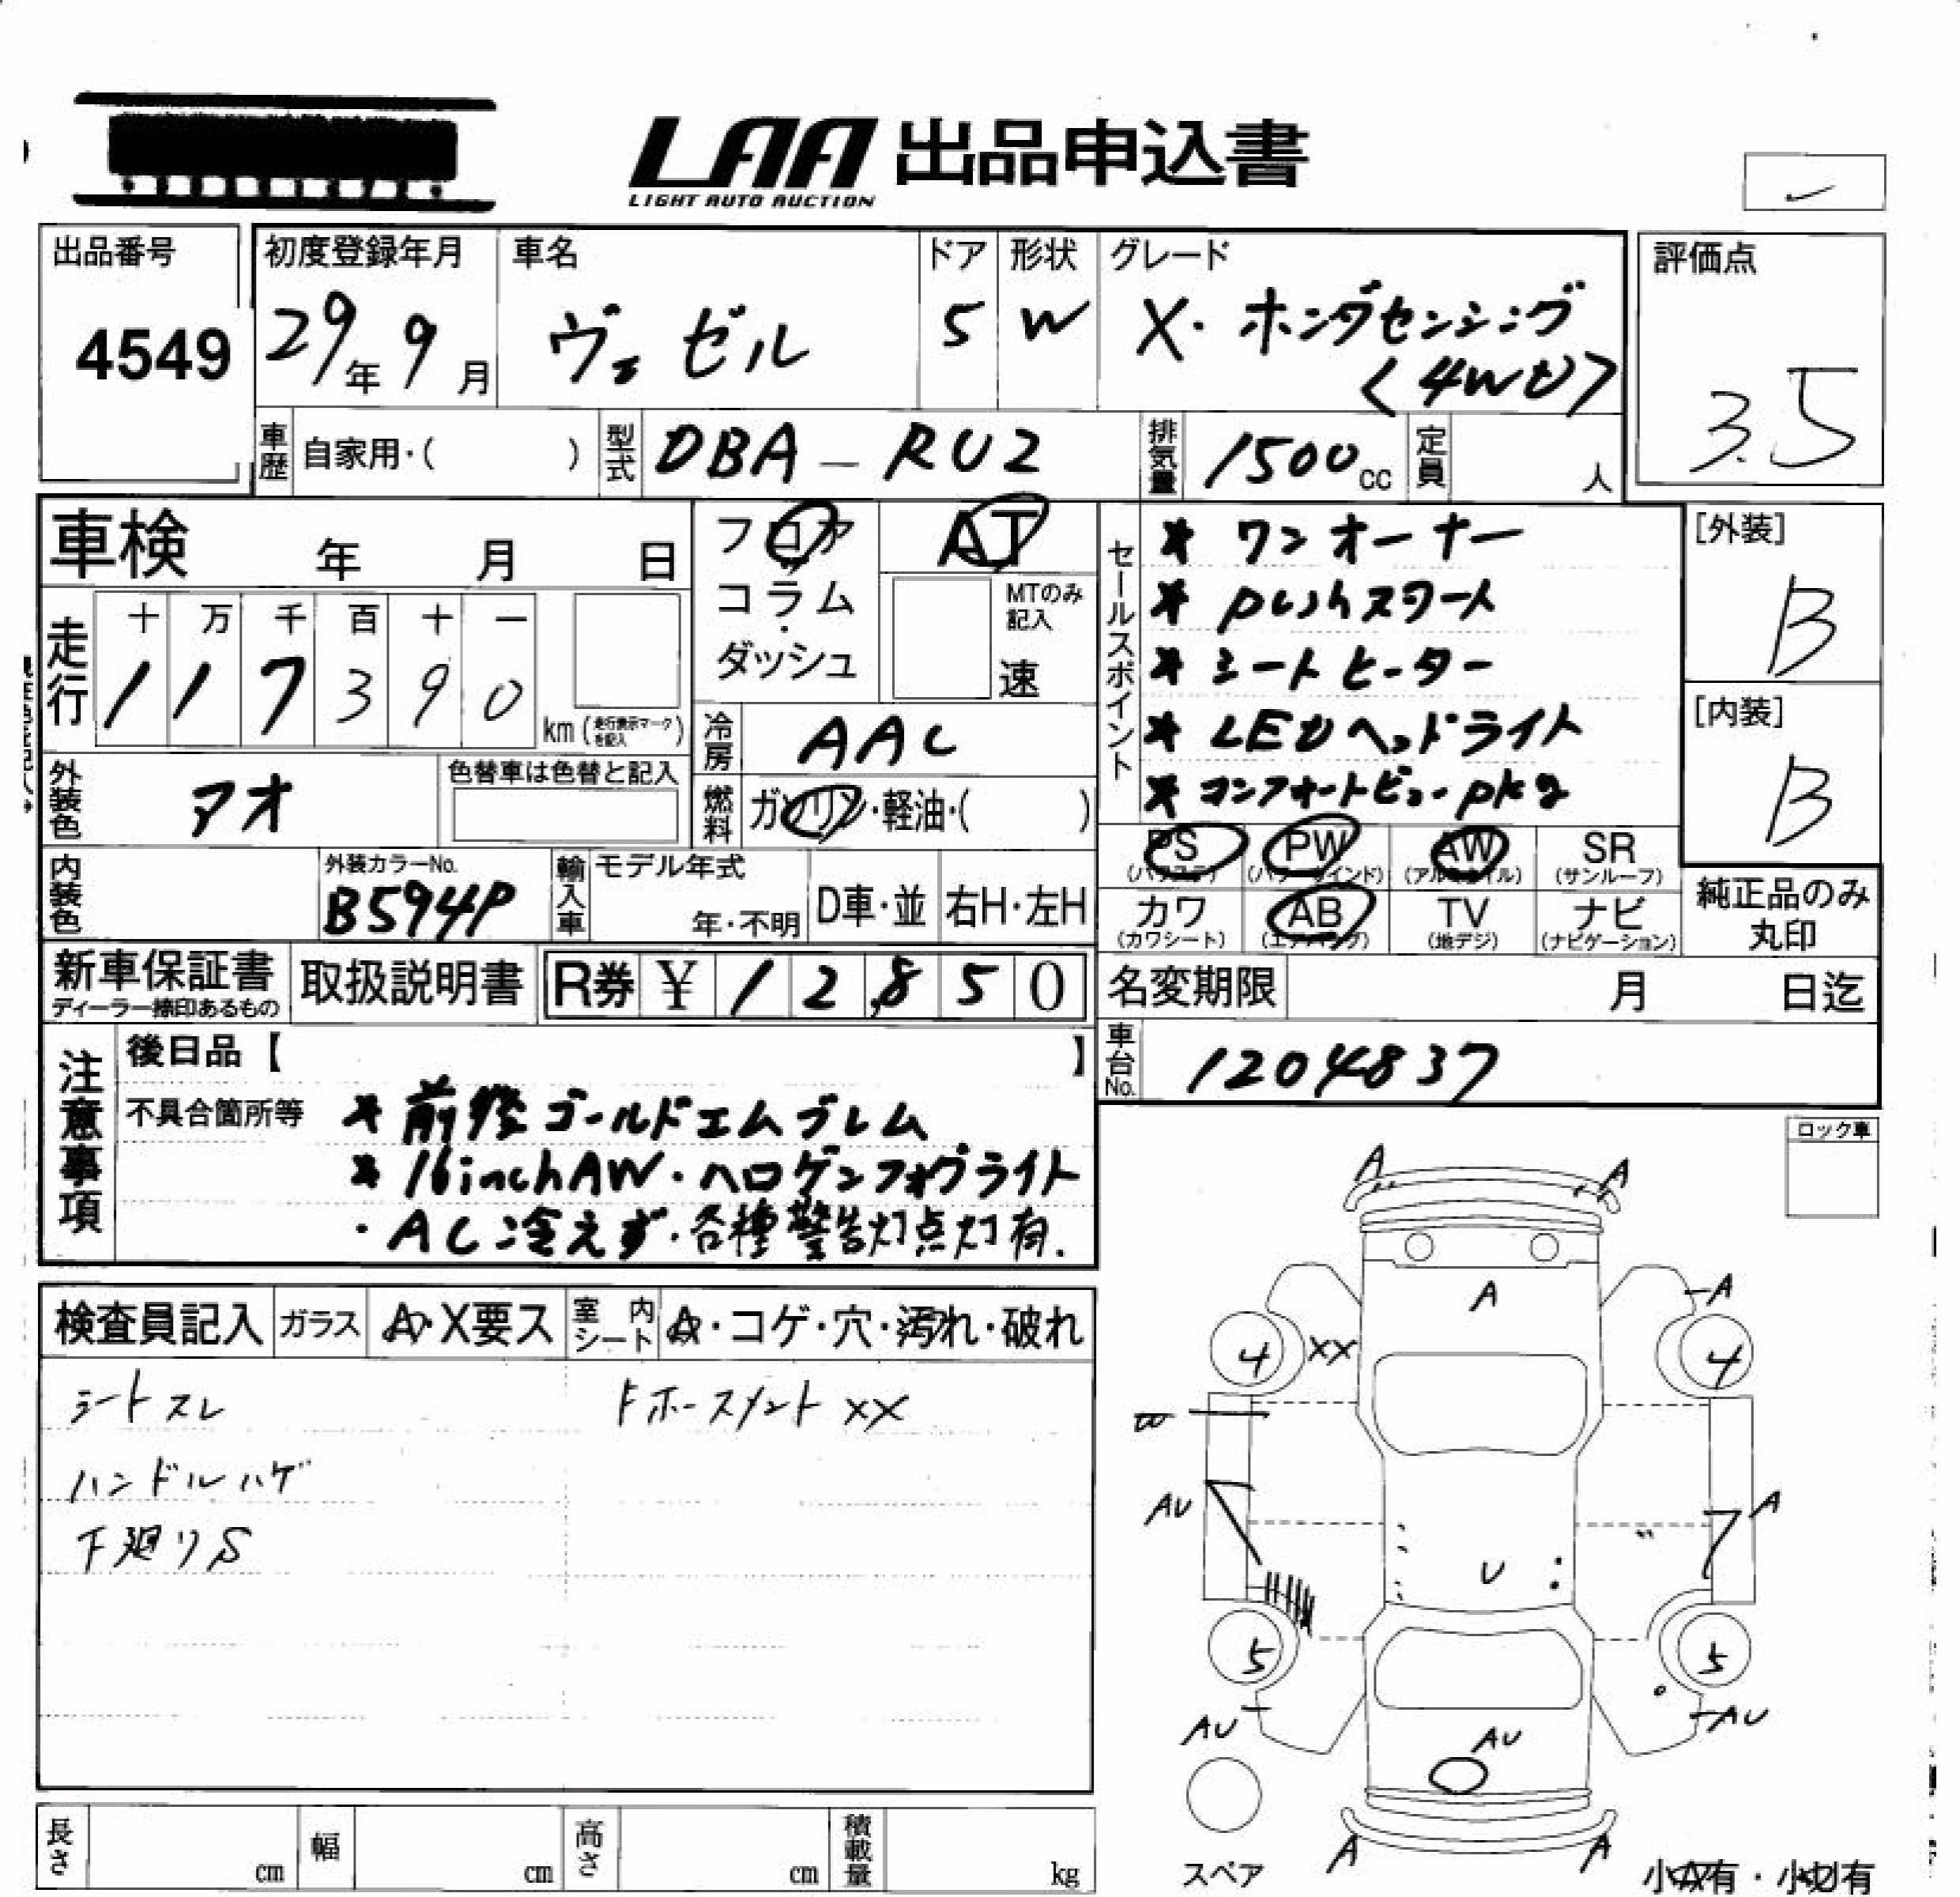 LAA 出品申込書
LIGHT AUTO AUCTION
出品番号
4549
初度登録年月
29年 9月
車名
ヴェゼル
ドア
5
形状
W
グレード
X・ホンダセンシング
〈4WD〉
評価点
3.5
車歴 自家用・( )
型式 DBA-RU2
排気量 1500cc
定員 人
車検 年 月 日
フロア
コラム
・
ダッシュ
AT
MTのみ
記入
速
走行
十 万 千 百 十 一
1 1 7 3 9 0
km (走行表示マークを記入)
冷房 AAC
外装色 アオ
色替車は色替と記入
燃料 ガソリン・軽油・( )
セールスポイント
* ワンオーナー
* pushスタート
* シートヒーター
* LEDヘッドライト
* コンフォートビューpkg
[外装]
B
[内装]
B
内装色
外装カラーNo.
B594P
輸入車
モデル年式
年・不明
D車・並
右H・左H
PS (パワステ)
PW (パワーウインド)
AW (アルミホイル)
SR (サンルーフ)
カワ (カワシート)
AB (エアバッグ)
TV (地デジ)
ナビ (ナビゲーション)
純正品のみ
丸印
新車保証書
ディーラー捺印あるもの
取扱説明書
R券 ¥ 12,850
名変期限 月 日迄
車台No. 1204837
注意事項
後日品【 】
不具合箇所等
* 前後ゴールドエムブレム
* 16inchAW・ハロゲンフォグライト
・AC冷えず・各種警告灯点灯有.
ロック車
検査員記入
ガラス A・X要ス
室内シート A・コゲ・穴・汚れ・破れ
シートスレ
Fホースメント XX
ハンドルハゲ
下廻りS
A A
A
A
4 XX 4
AU
A
U
5 5
AU
AU
AU
A A
スペア
小A有・小U有
長さ cm
幅 cm
高さ cm
積載量 kg